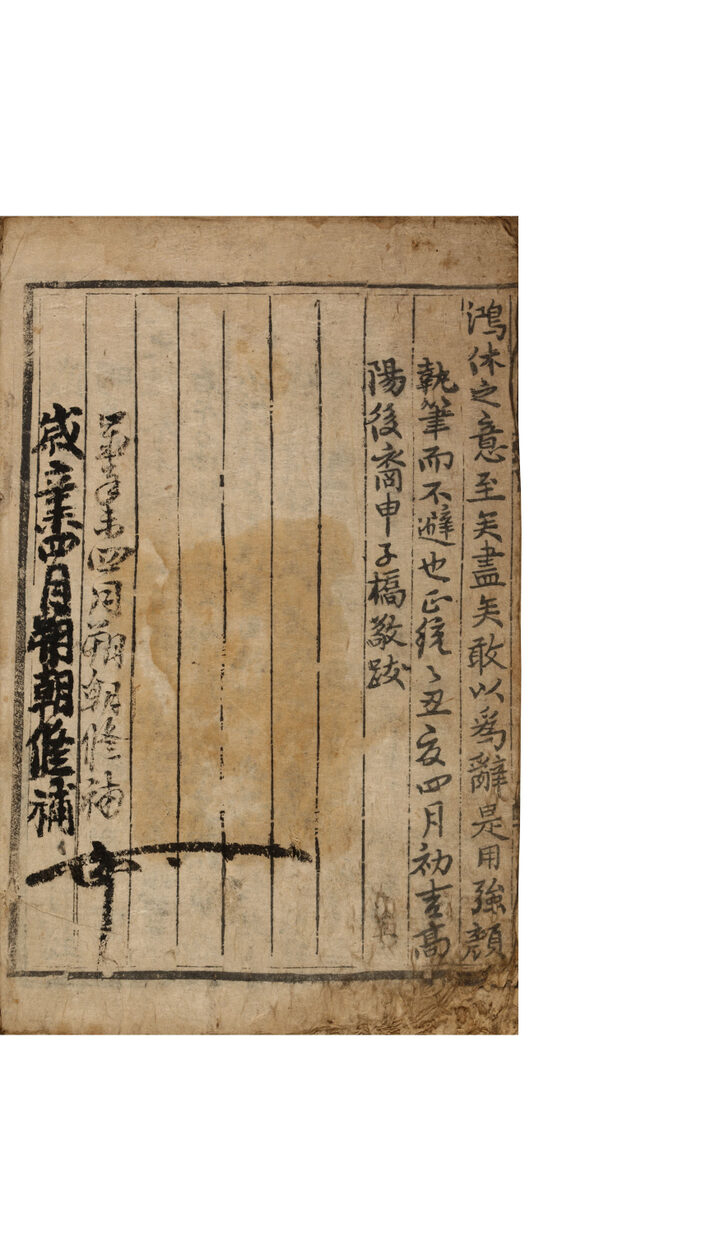 鴻休之意至矣盡矣敢以爲辭是用強顔
執筆而不避也正統乙丑夏四月初吉高
陽後裔申子橋敬跋
辛未四月朔朝修補
歲辛未四月朔朝修補